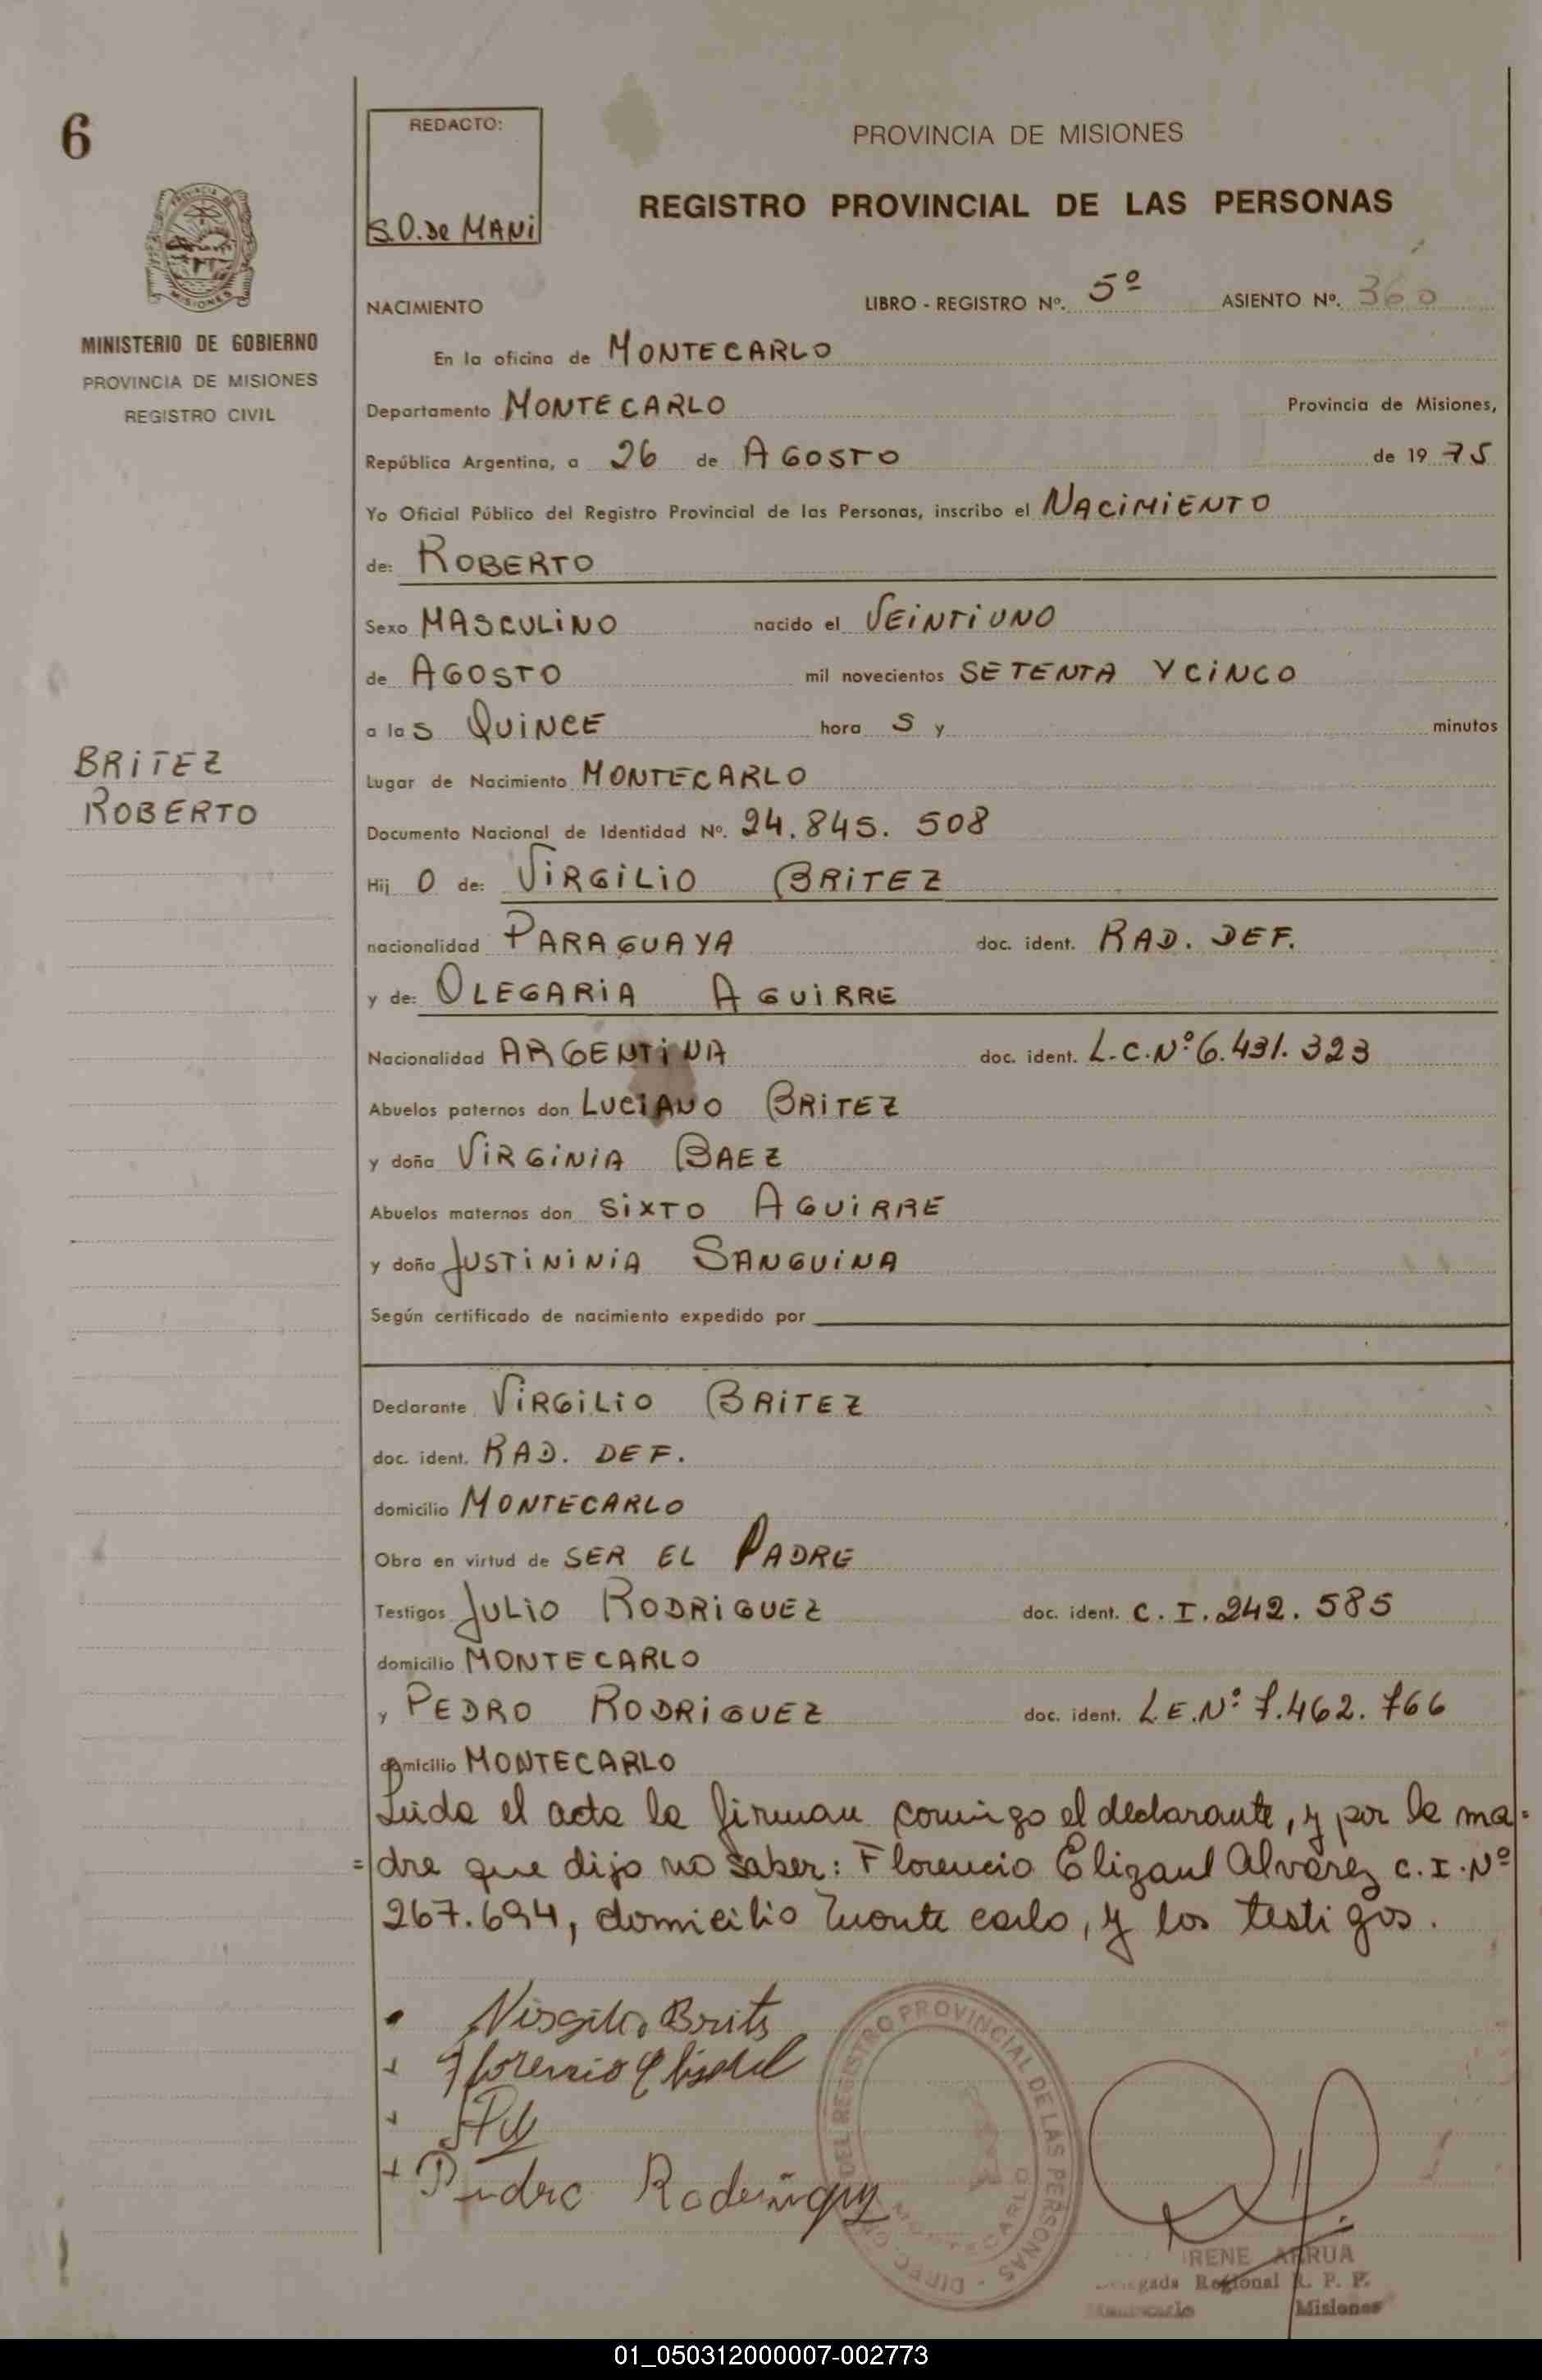 6
REDACTO:
S.O. de MANI
PROVINCIA DE MISIONES
REGISTRO PROVINCIAL DE LAS PERSONAS
MINISTERIO DE GOBIERNO
PROVINCIA DE MISIONES
REGISTRO CIVIL
NACIMIENTO LIBRO - REGISTRO Nº. 5º ASIENTO Nº. 360
En la oficina de MONTECARLO
Departamento MONTECARLO Provincia de Misiones,
República Argentina, a 26 de AGOSTO de 1975
Yo Oficial Público del Registro Provincial de las Personas, inscribo el NACIMIENTO
de: ROBERTO
Sexo MASCULINO nacido el VEINTIUNO
de AGOSTO mil novecientos SETENTA Y CINCO
a las QUINCE hora s y minutos
BRITEZ
ROBERTO
Lugar de Nacimiento MONTECARLO
Documento Nacional de Identidad Nº. 24.845.508
Hijo de: VIRGILIO BRITEZ
nacionalidad PARAGUAYA doc. ident. RAD. DEF.
y de: OLEGARIA AGUIRRE
Nacionalidad ARGENTINA doc. ident. L.C.Nº 6.431.323
Abuelos paternos don LUCIANO BRITEZ
y doña VIRGINIA BAEZ
Abuelos maternos don SIXTO AGUIRRE
y doña JUSTININIA SANGUINA
Según certificado de nacimiento expedido por
Declarante VIRGILIO BRITEZ
doc. ident. RAD. DEF.
domicilio MONTECARLO
Obra en virtud de SER EL PADRE
Testigos JULIO RODRIGUEZ doc. ident. C.I. 242.585
domicilio MONTECARLO
y PEDRO RODRIGUEZ doc. ident. L.E.Nº 7.462.766
domicilio MONTECARLO
Leida el acta la firman conmigo el declarante, y por la ma=
=dre que dijo no saber: Florencio Elizaul Alvarez C.I.Nº
267.694, domicilio Monte carlo, y los testigos.
Virgilio Brits
Florencio
Pedro Rodriguez
DEL REGISTRO PROVINCIAL DE LAS PERSONAS
MONTECARLO
IRENE ARRUA
Regional R. P. P.
Montecarlo Misiones
01_050312000007-002773